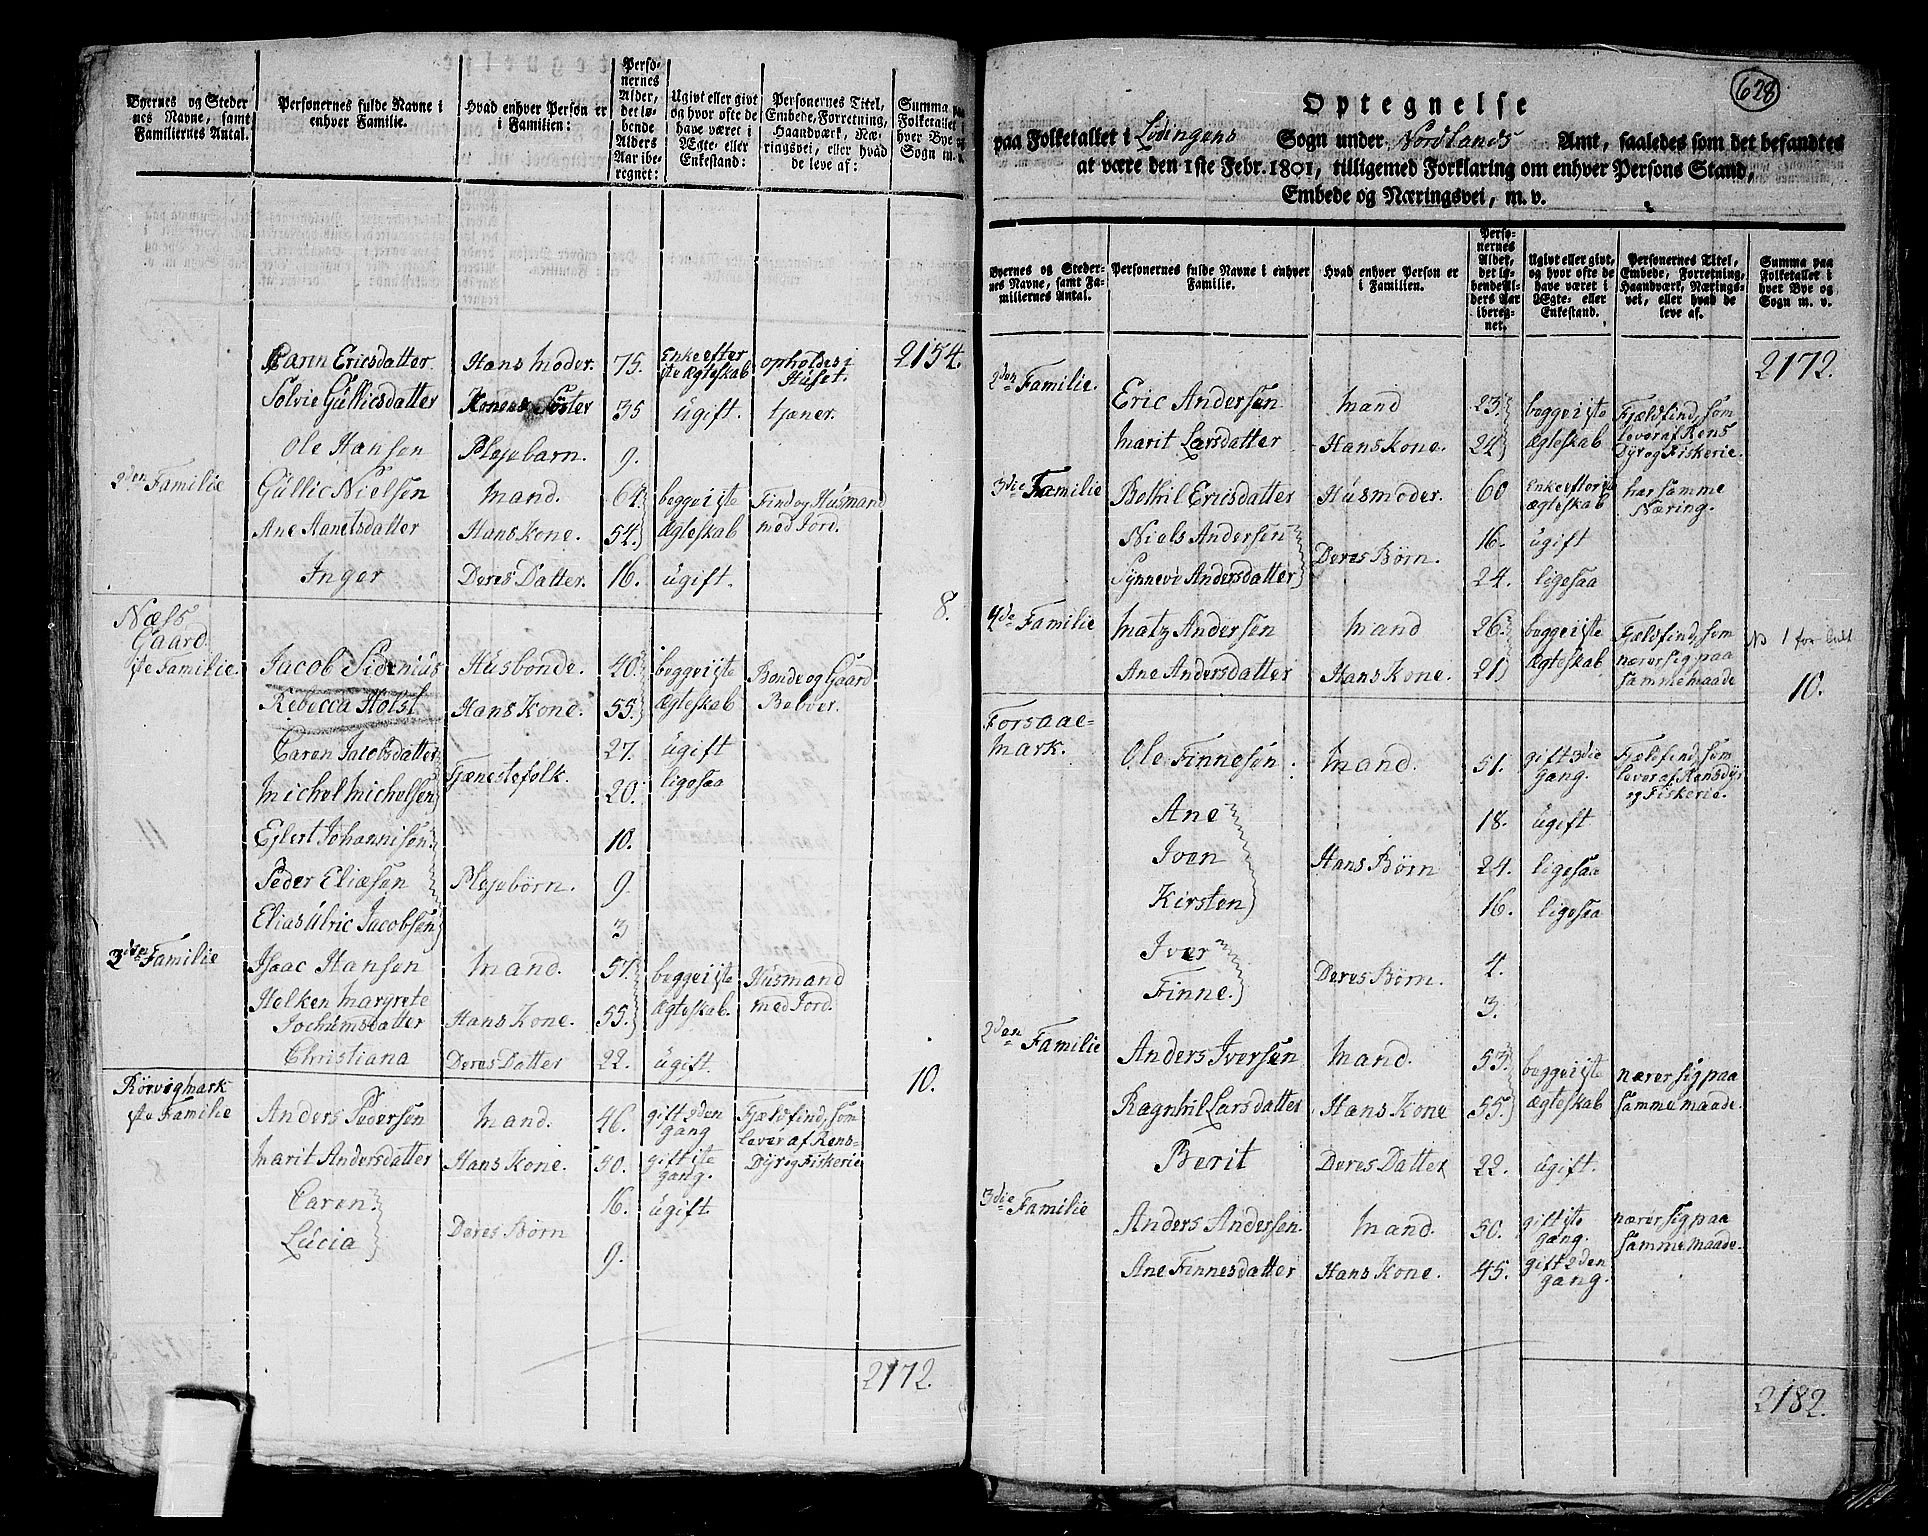 Byernes og Steder nes Navne, samt Familiernes Antal.
Personernes fulde Navne i enhver Familie.
Hvad enhver Person er i Familien:
Personernes Alder, det løbende Alders Aar iberegnet:
Ugivt eller givt og hvor ofte de have været i Ægte- eller Enkestand:
Personernes Titel, Embede, Forretning, Haandværk, Næringsvei, eller hvad de leve af:
Summa paa Folketallet i hver Bye og Sogn m. v.
Caren Ericsdatter Hans Moder. 75. Enke efter 1ste Ægteskab opholdes i Huset. 2154.
Solvie Güllicsdatter Konens Søster 35 ugift. tjener.
Ole Hansen Plejebarn. 9.
2den Familie Güllic Nielsen Mand. 64. begge i 1ste Find og Husmand
Ane Hanetsdatter Hans Kone. 54. Ægteskab med Jord.
Inger Deres Datter. 16. ugift. 8.
Næss
Gaard
1ste Familie Jacob Sidenius Husbonde. 40. begge i 1ste Bonde og Gaard
Rebecca Holst Hans Kone. 55. Ægteskab Bebver.
Caren Jacobsdatter 27. ugift
Michel Michelsen Tjenestefolk 20. ligesaa
11 Ejlert Johannisen 10.
Peder Eliæsen Plejebørn. 9.
Elias Ulric Jacobsen 3
3die Familie Isaac Hansen Mand. 57. begge i 1ste Husmand
Helken Margrete
Jochumsdatter Hans Kone. 55. Ægteskab. med Jord.
Christiana Deres Datter 22. ugift. 10.
Rørvigmark
1ste Familie Anders Pedersen Mand. 46. gift 2den gang Fjældfind, som lever af Rens-
8 Marit Andersdatter Hans Kone. 50. gift 1ste gang. Dyr og Fiskerie
Caren 16. ugift.
Lucia Deres Børn 9.
2172.
628
Optegnelse
paa Folketallet i Lødingens Sogn under Nordlands Amt, saaledes som det befandtes
at være den 1ste Febr. 1801, tilligemed Forklaring om enhver Persons Stand,
Embede og Næringsvei, m. v.
Byernes og Stedernes Navne, samt Familiernes Antal.
Personernes fulde Navne i enhver Familie.
Hvad enhver Person er i Familien.
Personernes Alder, det løbende Alders Aar iberegnet.
Ugivt eller givt, og hvor ofte de have været i Ægte- eller Enkestand.
Personernes Titel, Embede, Forretning, Haandværk, Næringsvei, eller hvad de leve af.
Summa paa Folketallet i hver Bye og Sogn m. v.
2172.
2den Familie. Eric Andersen Mand 23. begge i 1ste Fjældfind, som
Marit Larsdatter Hans Kone. 24 Ægteskab lever af Rens Dyr og Fiskerie.
3die Familie Bothil Ericsdatter Husmoder. 60 Enke efter 1ste Ægteskab har samme Næring.
Niels Andersen 16. ugift
Deres Børn.
Synnevi Andersdatter 24. ligesaa
4de Familie Matz Andersen Mand 26. begge i 1ste Fjældfind, som
Ane Andersdatter Hans Kone. 21 Ægteskab. nærer sig paa samme maade 10.
Forsaae-
Mark. Ole Finnesen. Mand. 51. gift 3die gang. Fjældfind, som lever af Rensdyr og Fiskerie.
Ane 18. ugift
Iven Hans Børn 24. ligesaa
Kirsten 16. ligesaa
Iver 4.
Deres Børn.
Finne. 3.
2den Familie Anders Iversen Mand. 53. begge i 1ste nærer sig paa
Ragnhil Larsdatter Hans Kone 55. Ægteskab samme maade.
Berit Deres Datter 22. ugift.
3die Familie Anders Andersen. Mand. 50. gift 1ste gang. nærer sig paa samme maade.
Ane Finnesdatter Hans Kone. 45. gift 2den gang.
2182.